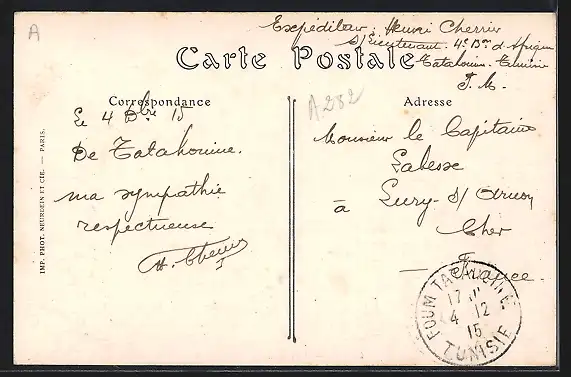 A
Expéditeur. Henri Cherrier
s/Lieutenant. 4e Bon d'Afrique
Carte Postale
Tatahouin. Tunisie
T. M.
Correspondance
Adresse
A.282
le 4 Dbre 15
De Tatahouine.
ma sympathie
respectueuse
H. Cherrier
Monsieur le Capitaine
Labesse
à Lury-s/Arnon
Cher
— France.
FOUM TATAHOUINE
17
4 12
15
TUNISIE
IMP. PHOT. NEURDEIN ET CIE. — PARIS.